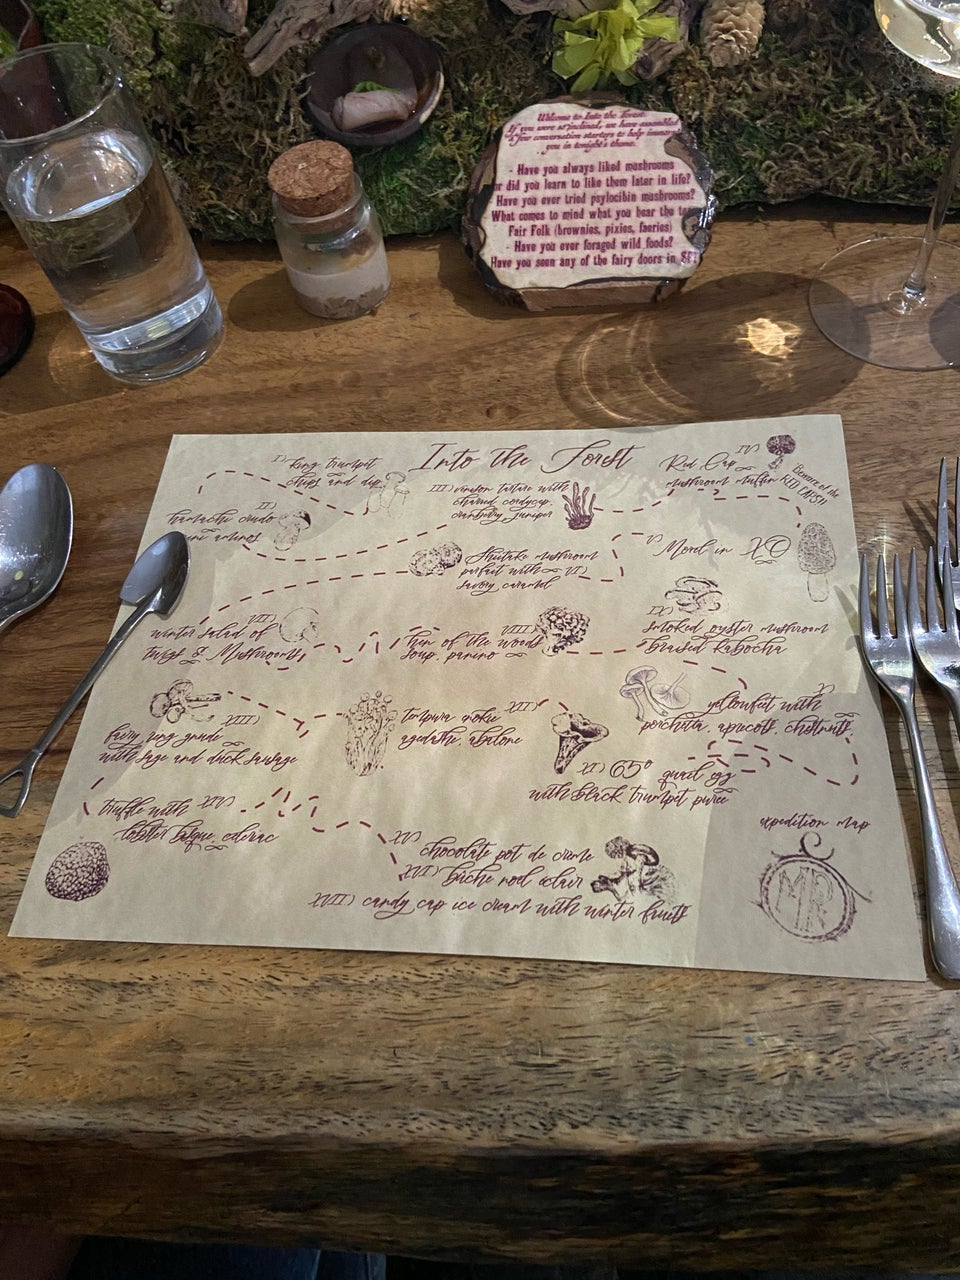 Welcome to Into the Forest.
If you were so inclined, we have assembled
a few conversation starters to help immerse
you in tonight's theme.
- Have you always liked mushrooms
or did you learn to like them later in life?
Have you ever tried psylocibin mushrooms?
What comes to mind what you hear the
Fair Folk (brownies, pixies, faeries)
- Have you ever foraged wild foods?
Have you seen any of the fairy doors in SF?
Into the Forest
I) king trumpet
chips and dip
II)
hamachi crudo
III) venison tartare with
charred cordycep
cranberry, juniper
IV)
Red Cap
mushroom muffin
Beware of the
RED CAPS!!
V) Morel in XO
Shiitake mushroom
parfait with VI)
savory caramel
VII)
winter salad of
twigs & Mushrooms
VIII)
Hen of the woods
soup, panino
IX)
smoked oyster mushroom
braised kabocha
X)
yellowfeet with
porchetta, apricots, chestnuts
XI) 65° quail egg
with black trumpet puree
XII)
tempura enoki
agedashi, abalone
XIII)
fairy ring gnudi
with sage and duck sausage
truffle with XIV)
lobster bisque,
XV)
chocolate pot de creme
XVI) bûche noel eclair
XVII) candy cap ice cream with winter fruits
expedition map
MR